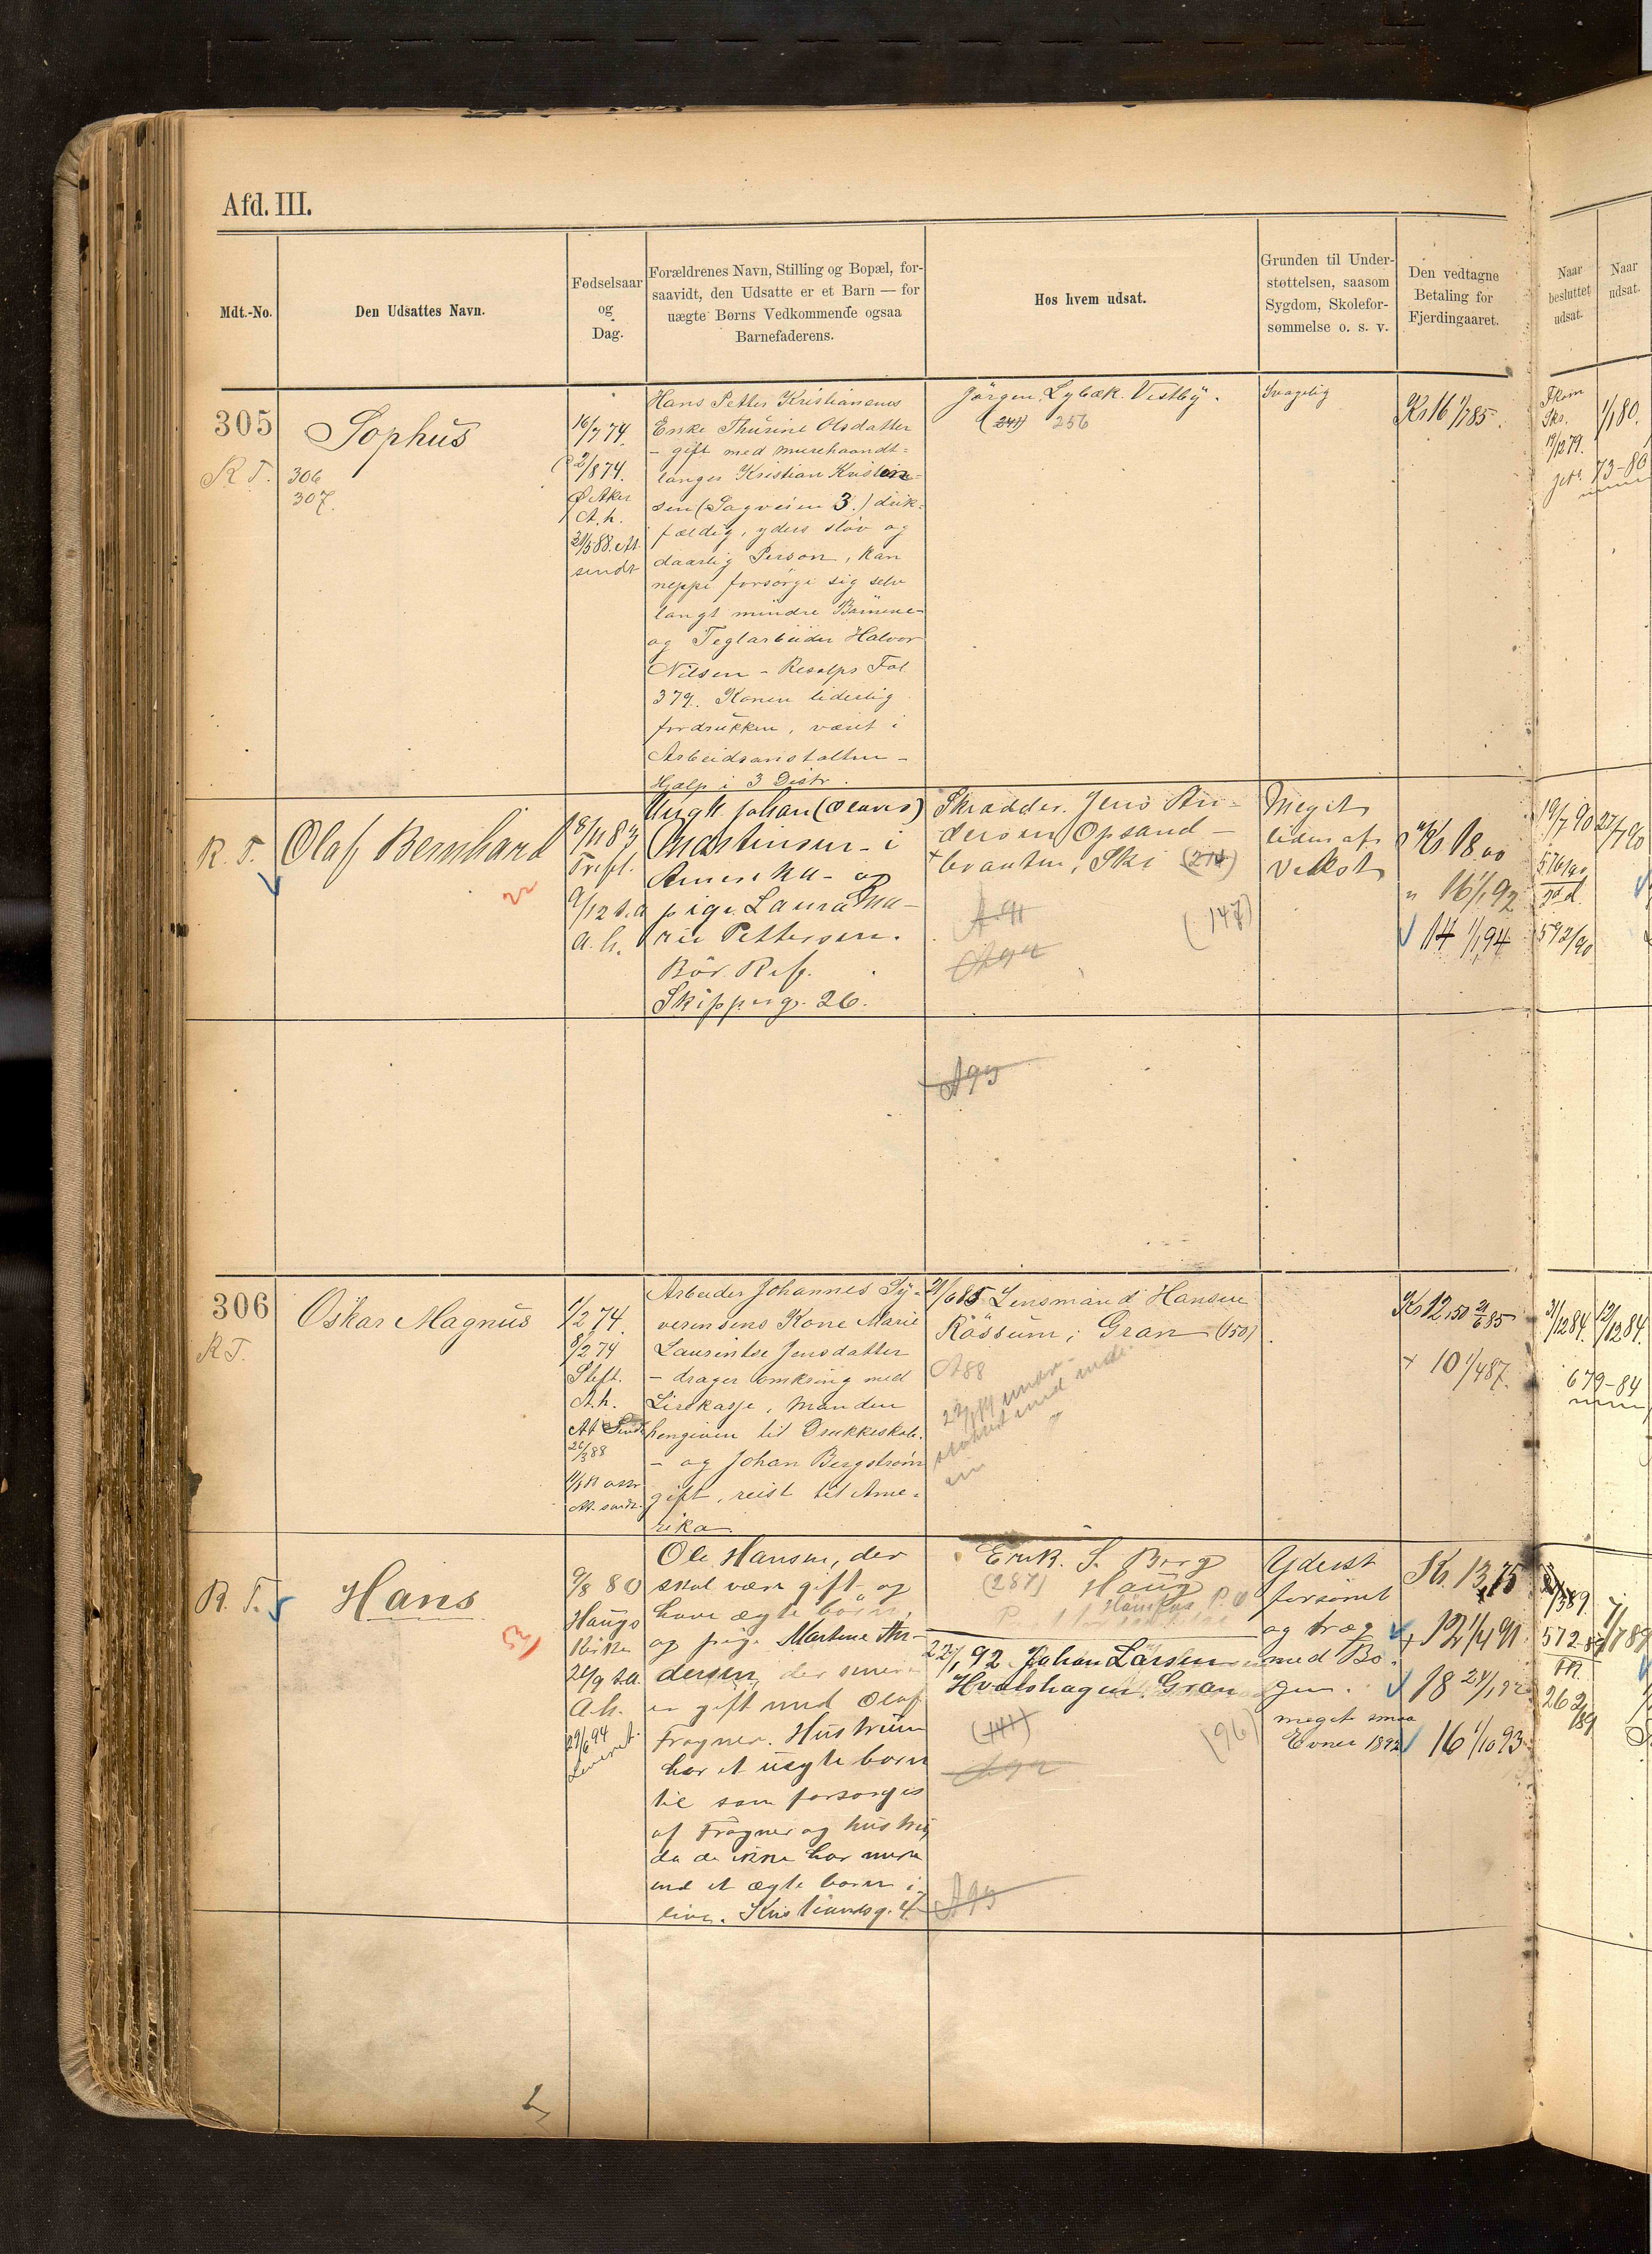 Afd. III.
Mdt.-No.
Den Udsattes Navn.
Fødselsaar
og
Dag.
Forældrenes Navn, Stilling og Bopæl, for-
saavidt, den Udsatte er et Barn — for
uægte Børns Vedkommende ogsaa
Barnefaderens.
Hos hvem udsat.
Grunden til Under-
støttelsen, saasom
Sygdom, Skolefor-
sømmelse o. s. v.
Den vedtagne
Betaling for
Fjerdingaaret.
Naar
besluttet
udsat.
Naar
udsat.
305
R T.
Sophus
306
307.
16/7 74.
2/8 74.
Ø. Aker
A. h.
31/5 88. At.
sendt
Hans Petter Kristiansens
Enke Thurine Olsdatter
- gift med murehaandt-
langer Kristian Kristen-
sen (Sagveien 3.) drik-
fældig, yders sløv og
daarlig Person, kan
neppe forsørge sig selv
langt mindre Børnene-
og Teglarbeider Halvor
Nilsen - Resolps Fol
379. Konen liderlig
fordrukken, været i
Arbeidsanstalten -
Hjælp i 3 Distr.
Jørgen Lybæk. Vestby.
(241) 256
Svagelig
Kr 16 1/1 85.
19/12 79.
1/1 80.
73-80
R. T.
Olaf Bernhard
18/11 83
Trefl.
9/12 s.a
a. h.
Ungk. Johan (Olaus)
Mastinsen - i
Amerika - og
pige Laura Ma-
rie Pettersen.
Bør Ref.
Skipperg. 26.
Skrædder Jens An-
dersen Opsand -
braaten, Ski (214)
A 91
(147)
A 92
A 93
Meget
liden af
Vekst
Kr 18.00
" 16 1/1 92
14 1/1 94
19/7 90
27/7 90
576/90
592/90
306
R T.
Oskar Magnus
1/2 74.
8/2 74
Stift.
A. h.
At Sendt
26/3 88
At. sendt.
Arbeider Johannes Sy-
verensens Kone Marie
Laurentse Jensdatter
- drager omkring med
Lirekasse, manden
hengiven til Drukkeskab.
- og Johan Bergstrøm
gift, reist til Ame-
rika.
21/6 85 Lensmand Hansen
Røssum, Gran (150)
A 88
Kr 12,50 21/6 85
+ 10 1/4 87.
31/12 84.
12/12 84.
679-84
R. T.
Hans
9/8 80
Haugs
Kirke
26/9 s.a.
A. h.
29/6 94
Leveret.
Ole Hansen, der
skal være gift og
have ægte børn,
og pige Martine An-
dersen, der senere
er gift med Olaf
Frogner. Hustruen
har et uægte barn
til som forsørges
af Frogner og hustru,
da de ikke har mere
end et ægte barn i
live. Kristiansg. 4.
Erik. S. Berg
(287) Haug
Hønefos P. O
22/1 92 Johan Larsen
Hvalshagen. Gran
(141)
(96)
A 92
A 93
Yderst
forsømt
og træg
med Bo-
gen.
meget smaa
Evner 1892
Kr. 13,75
+ 12 1/4 91.
18 24/1 92
16 1/10 93
572-89
262/89
7/7 89